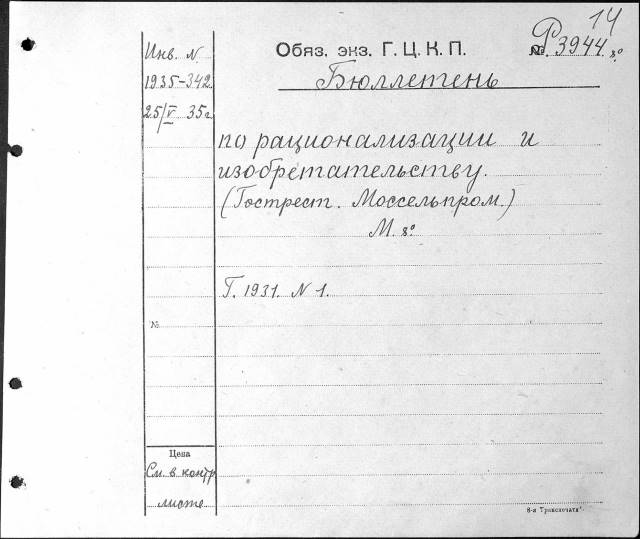 14
Инв. N
1935-342
25/V 35г.
Обяз. экз. Г. Ц. К. П.
№ Р3944. 8°
Бюллетень
по рационализации и
изобретательству.
(Гострест. Моссельпром.)
М. 8°
Г. 1931. N 1.
№
Цена
См. в контр.
листе
8-я Транспечати